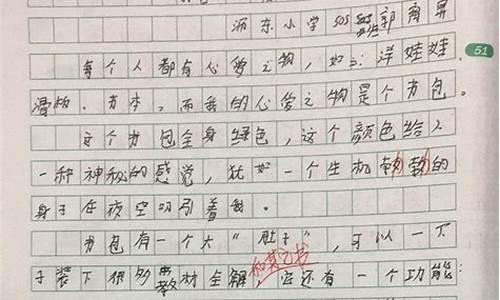 沥东小学505班郭育昇
每个人都有心爱之物，如：洋娃娃、
滑板、书本，而我的心爱之物是个书包。
这个书包全身绿色，这个颜色给人
一种神秘的感觉，犹如一个生机勃勃的
身于在夜空吸引着我。
书包有一个大“肚子”，可以一下
子装下很多教材全解和其它书它还有一个功能
51